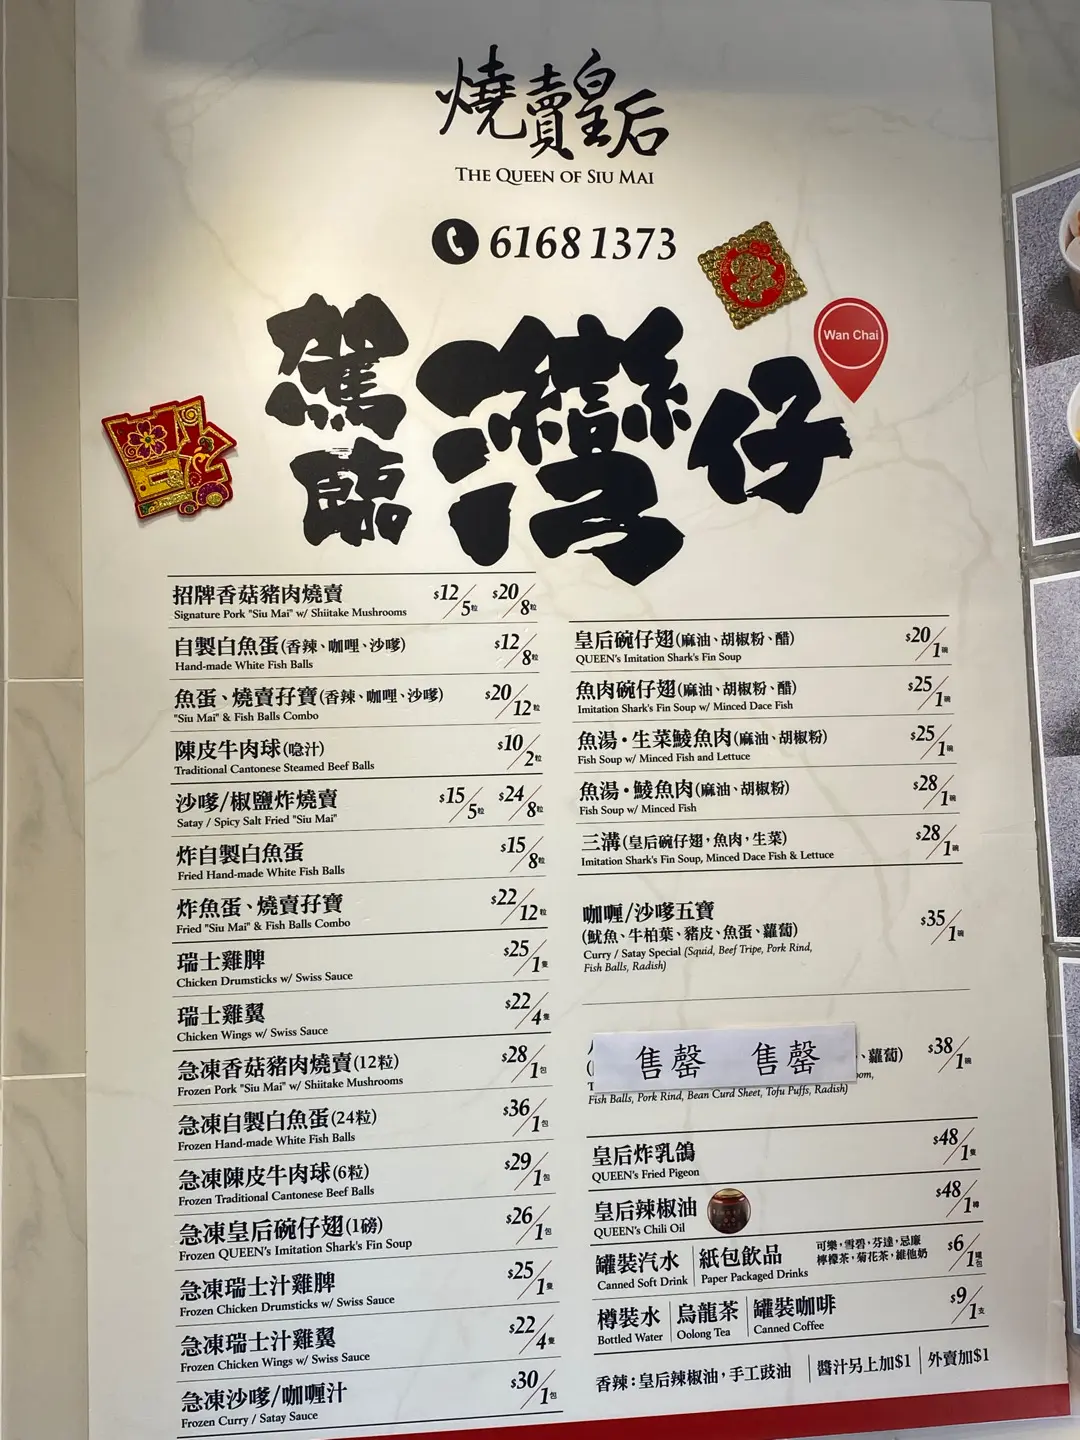 燒賣皇后
THE QUEEN OF SIU MAI
6168 1373
Wan Chai
駕臨
灣仔
招牌香菇豬肉燒賣 $12/5粒 $20/8粒
Signature Pork "Siu Mai" w/ Shiitake Mushrooms
自製白魚蛋(香辣、咖哩、沙嗲) $12/8粒
Hand-made White Fish Balls
魚蛋、燒賣孖寶(香辣、咖哩、沙嗲) $20/12粒
"Siu Mai" & Fish Balls Combo
陳皮牛肉球(喼汁) $10/2粒
Traditional Cantonese Steamed Beef Balls
沙嗲/椒鹽炸燒賣 $15/5粒 $24/8粒
Satay / Spicy Salt Fried "Siu Mai"
炸自製白魚蛋 $15/8粒
Fried Hand-made White Fish Balls
炸魚蛋、燒賣孖寶 $22/12粒
Fried "Siu Mai" & Fish Balls Combo
瑞士雞髀 $25/1隻
Chicken Drumsticks w/ Swiss Sauce
瑞士雞翼 $22/4隻
Chicken Wings w/ Swiss Sauce
急凍香菇豬肉燒賣(12粒) $28/1包
Frozen Pork "Siu Mai" w/ Shiitake Mushrooms
急凍自製白魚蛋(24粒) $36/1包
Frozen Hand-made White Fish Balls
急凍陳皮牛肉球(6粒) $29/1包
Frozen Traditional Cantonese Beef Balls
急凍皇后碗仔翅(1磅) $26/1包
Frozen QUEEN's Imitation Shark's Fin Soup
急凍瑞士汁雞髀 $25/1隻
Frozen Chicken Drumsticks w/ Swiss Sauce
急凍瑞士汁雞翼 $22/4隻
Frozen Chicken Wings w/ Swiss Sauce
急凍沙嗲/咖喱汁 $30/1包
Frozen Curry / Satay Sauce
皇后碗仔翅(麻油、胡椒粉、醋) $20/1碗
QUEEN's Imitation Shark's Fin Soup
魚肉碗仔翅(麻油、胡椒粉、醋) $25/1碗
Imitation Shark's Fin Soup w/ Minced Dace Fish
魚湯•生菜鯪魚肉(麻油、胡椒粉) $25/1碗
Fish Soup w/ Minced Fish and Lettuce
魚湯•鯪魚肉(麻油、胡椒粉) $28/1碗
Fish Soup w/ Minced Fish
三溝(皇后碗仔翅，魚肉，生菜) $28/1碗
Imitation Shark's Fin Soup, Minced Dace Fish & Lettuce
咖喱/沙嗲五寶 $35/1碗
(魷魚、牛柏葉、豬皮、魚蛋、蘿蔔)
Curry / Satay Special (Squid, Beef Tripe, Pork Rind,
Fish Balls, Radish)
售罄 售罄
、蘿蔔) $38/1碗
Fish Balls, Pork Rind, Bean Curd Sheet, Tofu Puffs, Radish)
皇后炸乳鴿 $48/1隻
QUEEN's Fried Pigeon
皇后辣椒油 $48/1樽
QUEEN's Chili Oil
罐裝汽水 紙包飲品 可樂，雪碧，芬達，忌廉 $6/1罐包
檸檬茶，菊花茶，維他奶
Canned Soft Drink Paper Packaged Drinks
樽裝水 烏龍茶 罐裝咖啡 $9/1支
Bottled Water Oolong Tea Canned Coffee
香辣：皇后辣椒油，手工豉油 醬汁另上加$1 外賣加$1